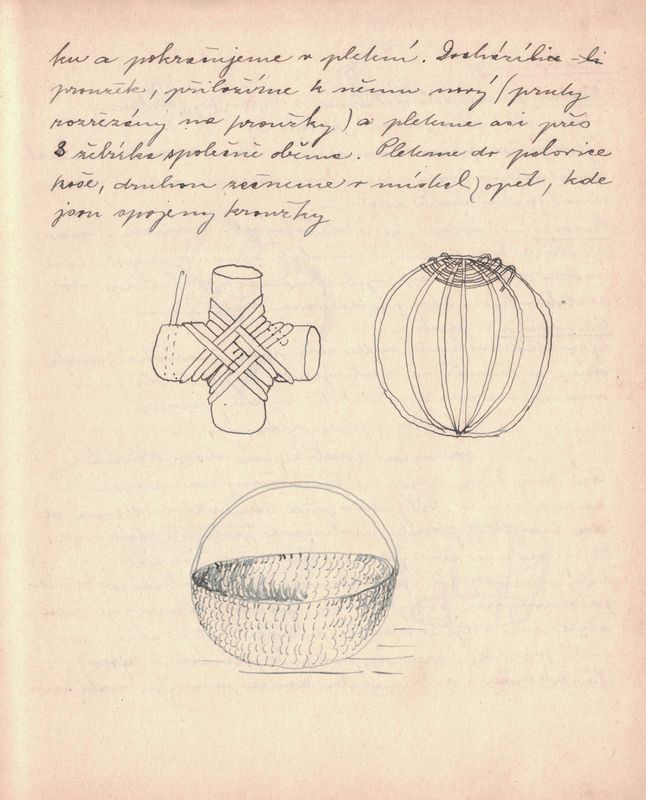 ku a pokračujeme v pletení. Dochází-li
proužek, přiložíme k němu nový (pruty
rozřezány na proužky) a pleteme asi přes
3 žebírka společně oběma. Pleteme do polovice
koše, druhou začneme v místech opět, kde
jsou spojeny kroužky